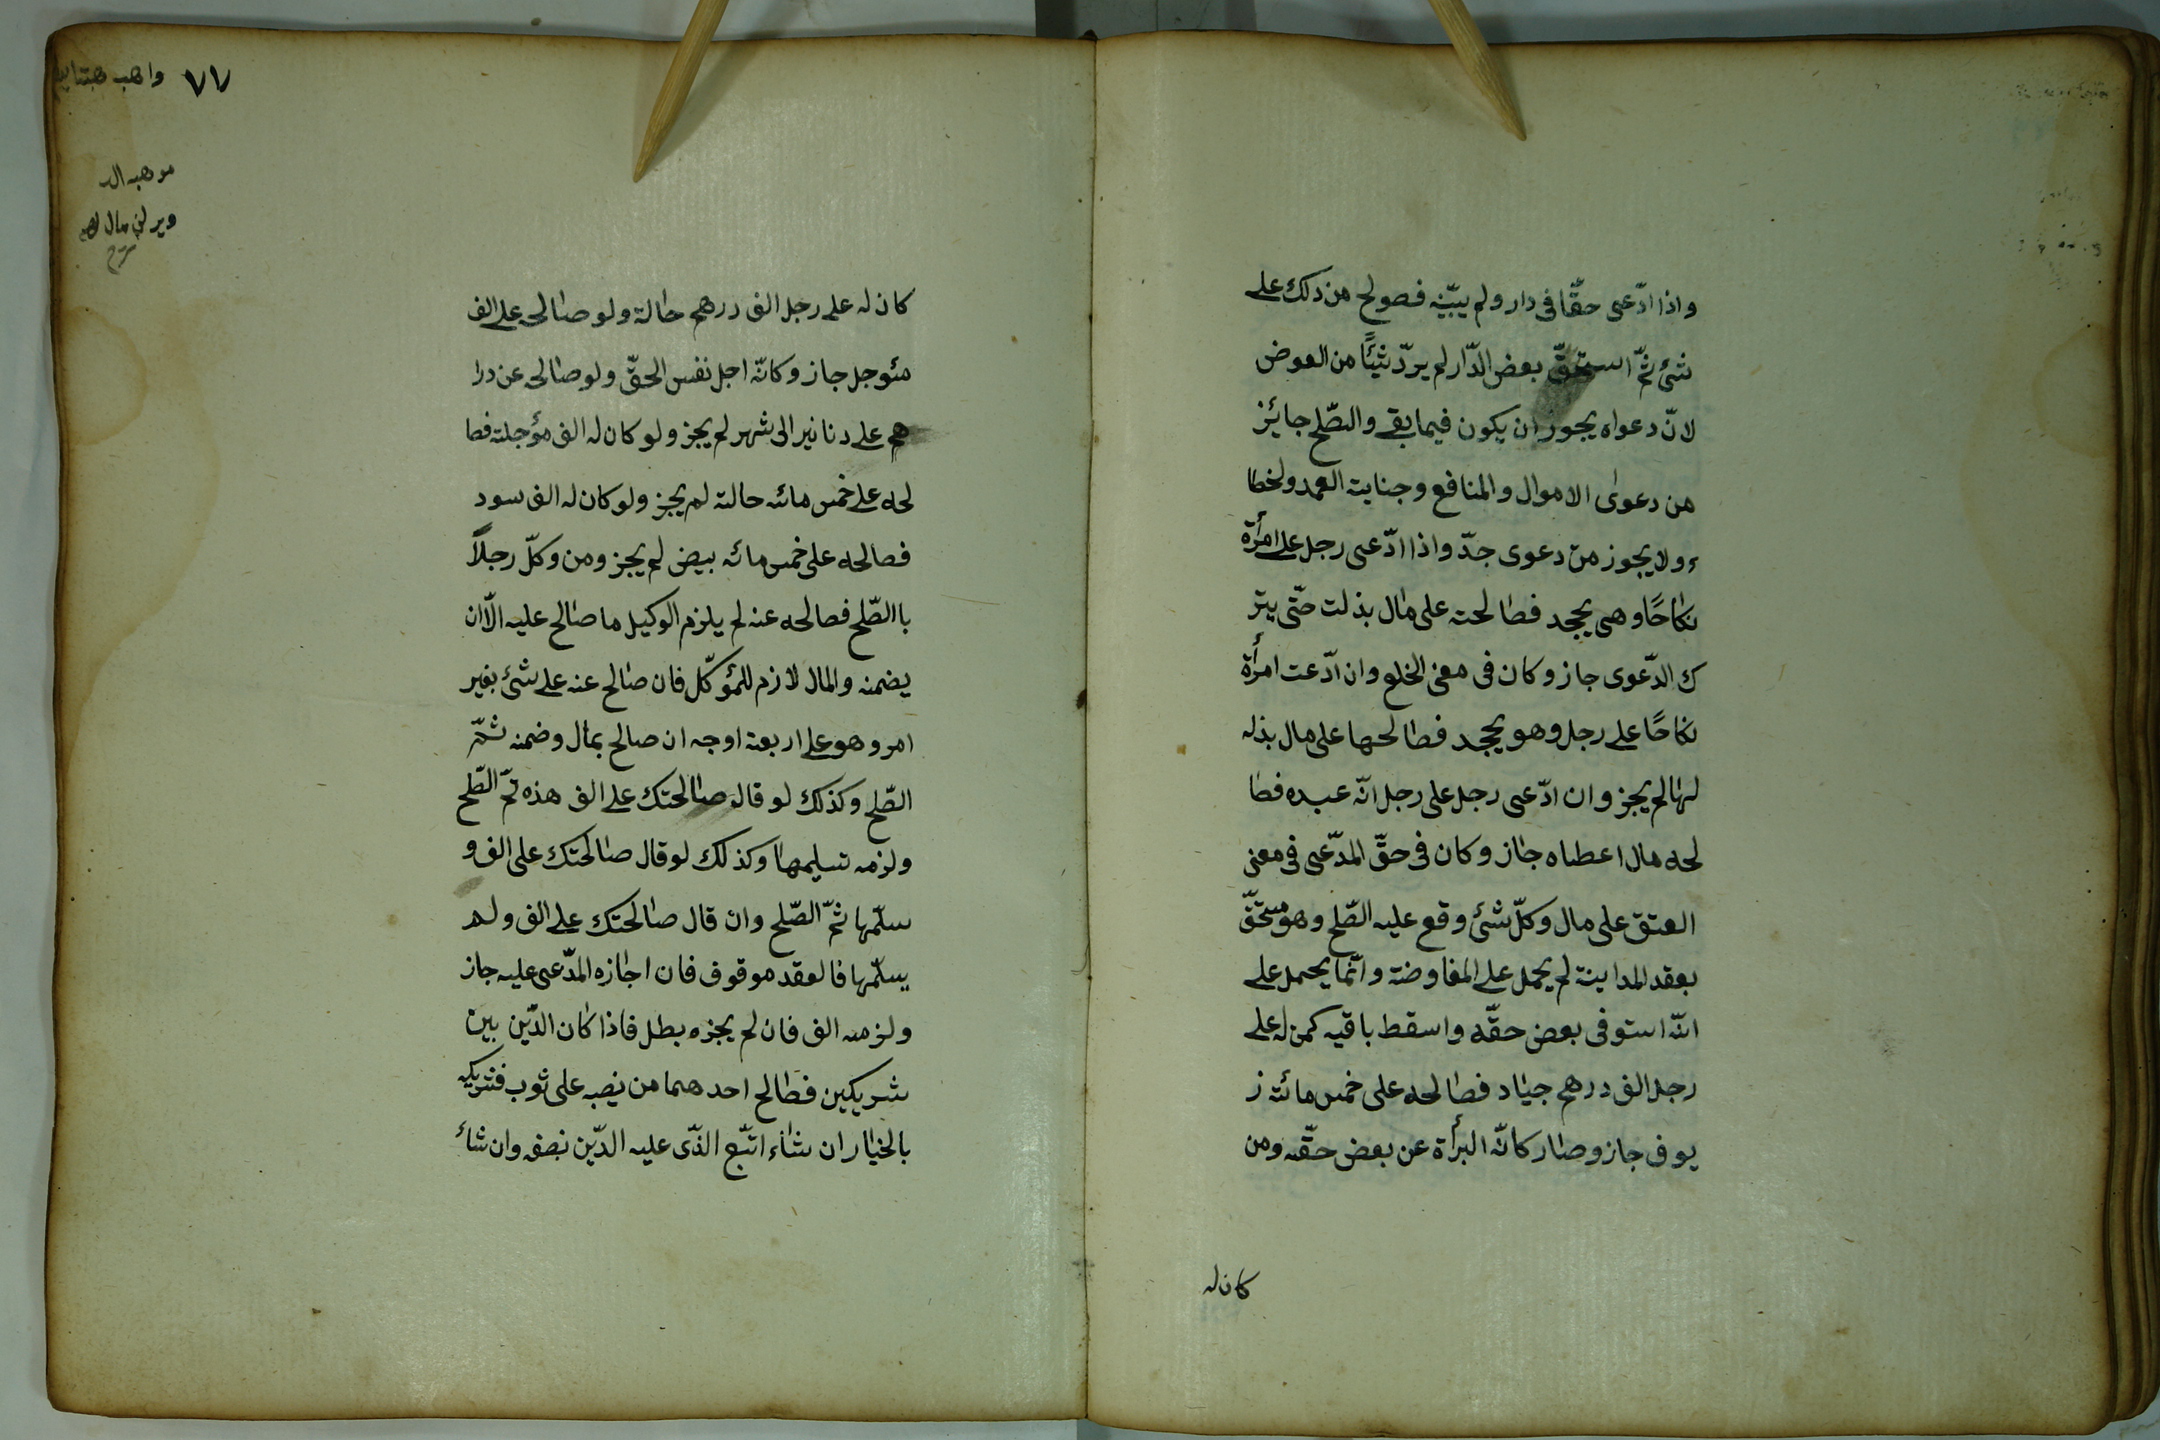 واذا ادّعى حقّا فى دار ولم يبيّنه فصولح من ذلك على
شئ ثمّ استحقّ بعض الدّار لم يردّ شيئًا من العوض
لانّ دعواه يجوز ان يكون فيما بقى والصّلح جايئز
من دعوى الاموال والمنافع وجناية العمد ولخطا
ء ولا يجوز من دعوى حدّ واذا ادّعى رجل على امرأة
نكاحًا وهى يجحد فصالحته على مال بذلت حتّى يتر
ك الدّعوى جاز وكان فى معنى الخلع وان ادّعت امرأة
نكاحًا على رجل وهو يجحد فصالحها على مال بذله
لها لم يجز وان ادّعى رجل على رجل انّه عبده فصا
لحه مال اعطاه جاز وكان فى حقّ المدّعى فى معنى
العتق على مال وكلّ شئ وقع عليه الصّلح وهو مستحقّ
بعقد المداينة لم يحمل على المفاوضة وانّما يحمل على
انّه استوفى بعض حقّه واسقط باقيه كمن له على
رجل الف درهم جياد فصالحه على خمس مائة ز
يوف جاز وصار كانّه البرأة عن بعض حقّه ومن
كان له
٧٧
كان له على رجل الف درهم حالة ولو صالحه على الف
مئوجل جاز وكانّه اجل نفس الحقّ ولو صالحه عن درا
هم على دنانير الى شهر لم يجز ولو كان له الف مؤجلة فصا
لحه على خمس مائه حالة لم يجز ولو كان له الف سود
فصالحه على خمس مائه بيض لم يجز ومن وكلّ رجلاً
باالصّلح فصالحه عنه لم يلزم الوكيل ما صالح عليه الّا ان
يضمنه والمال لازم للمؤكّل فان صالح عنه على شئ بغير
امر وهو على اربعة اوجه ان صالح بمال وضمنه ثمّ
الصّلح وكذلك لو قال صالحتك على الف هذه تمّ الصّلح
ولزمه تسليمها وكذلك لو قال صالحتك على الف و
سلّمها ثمّ الصّلح وان قال صالحتك على الف ولم
يسلّمها فالعقد موقوف فان اجازه المدّعى عليه جاز
ولزمه الف فان لم يجزه بطل فاذا كان الدّين بين
شريكين فصالح احدهما من نصبه على ثوب فشريكه
بالخيار ان شاء اتّبع الذّى عليه الدّين نصفه وان شاء